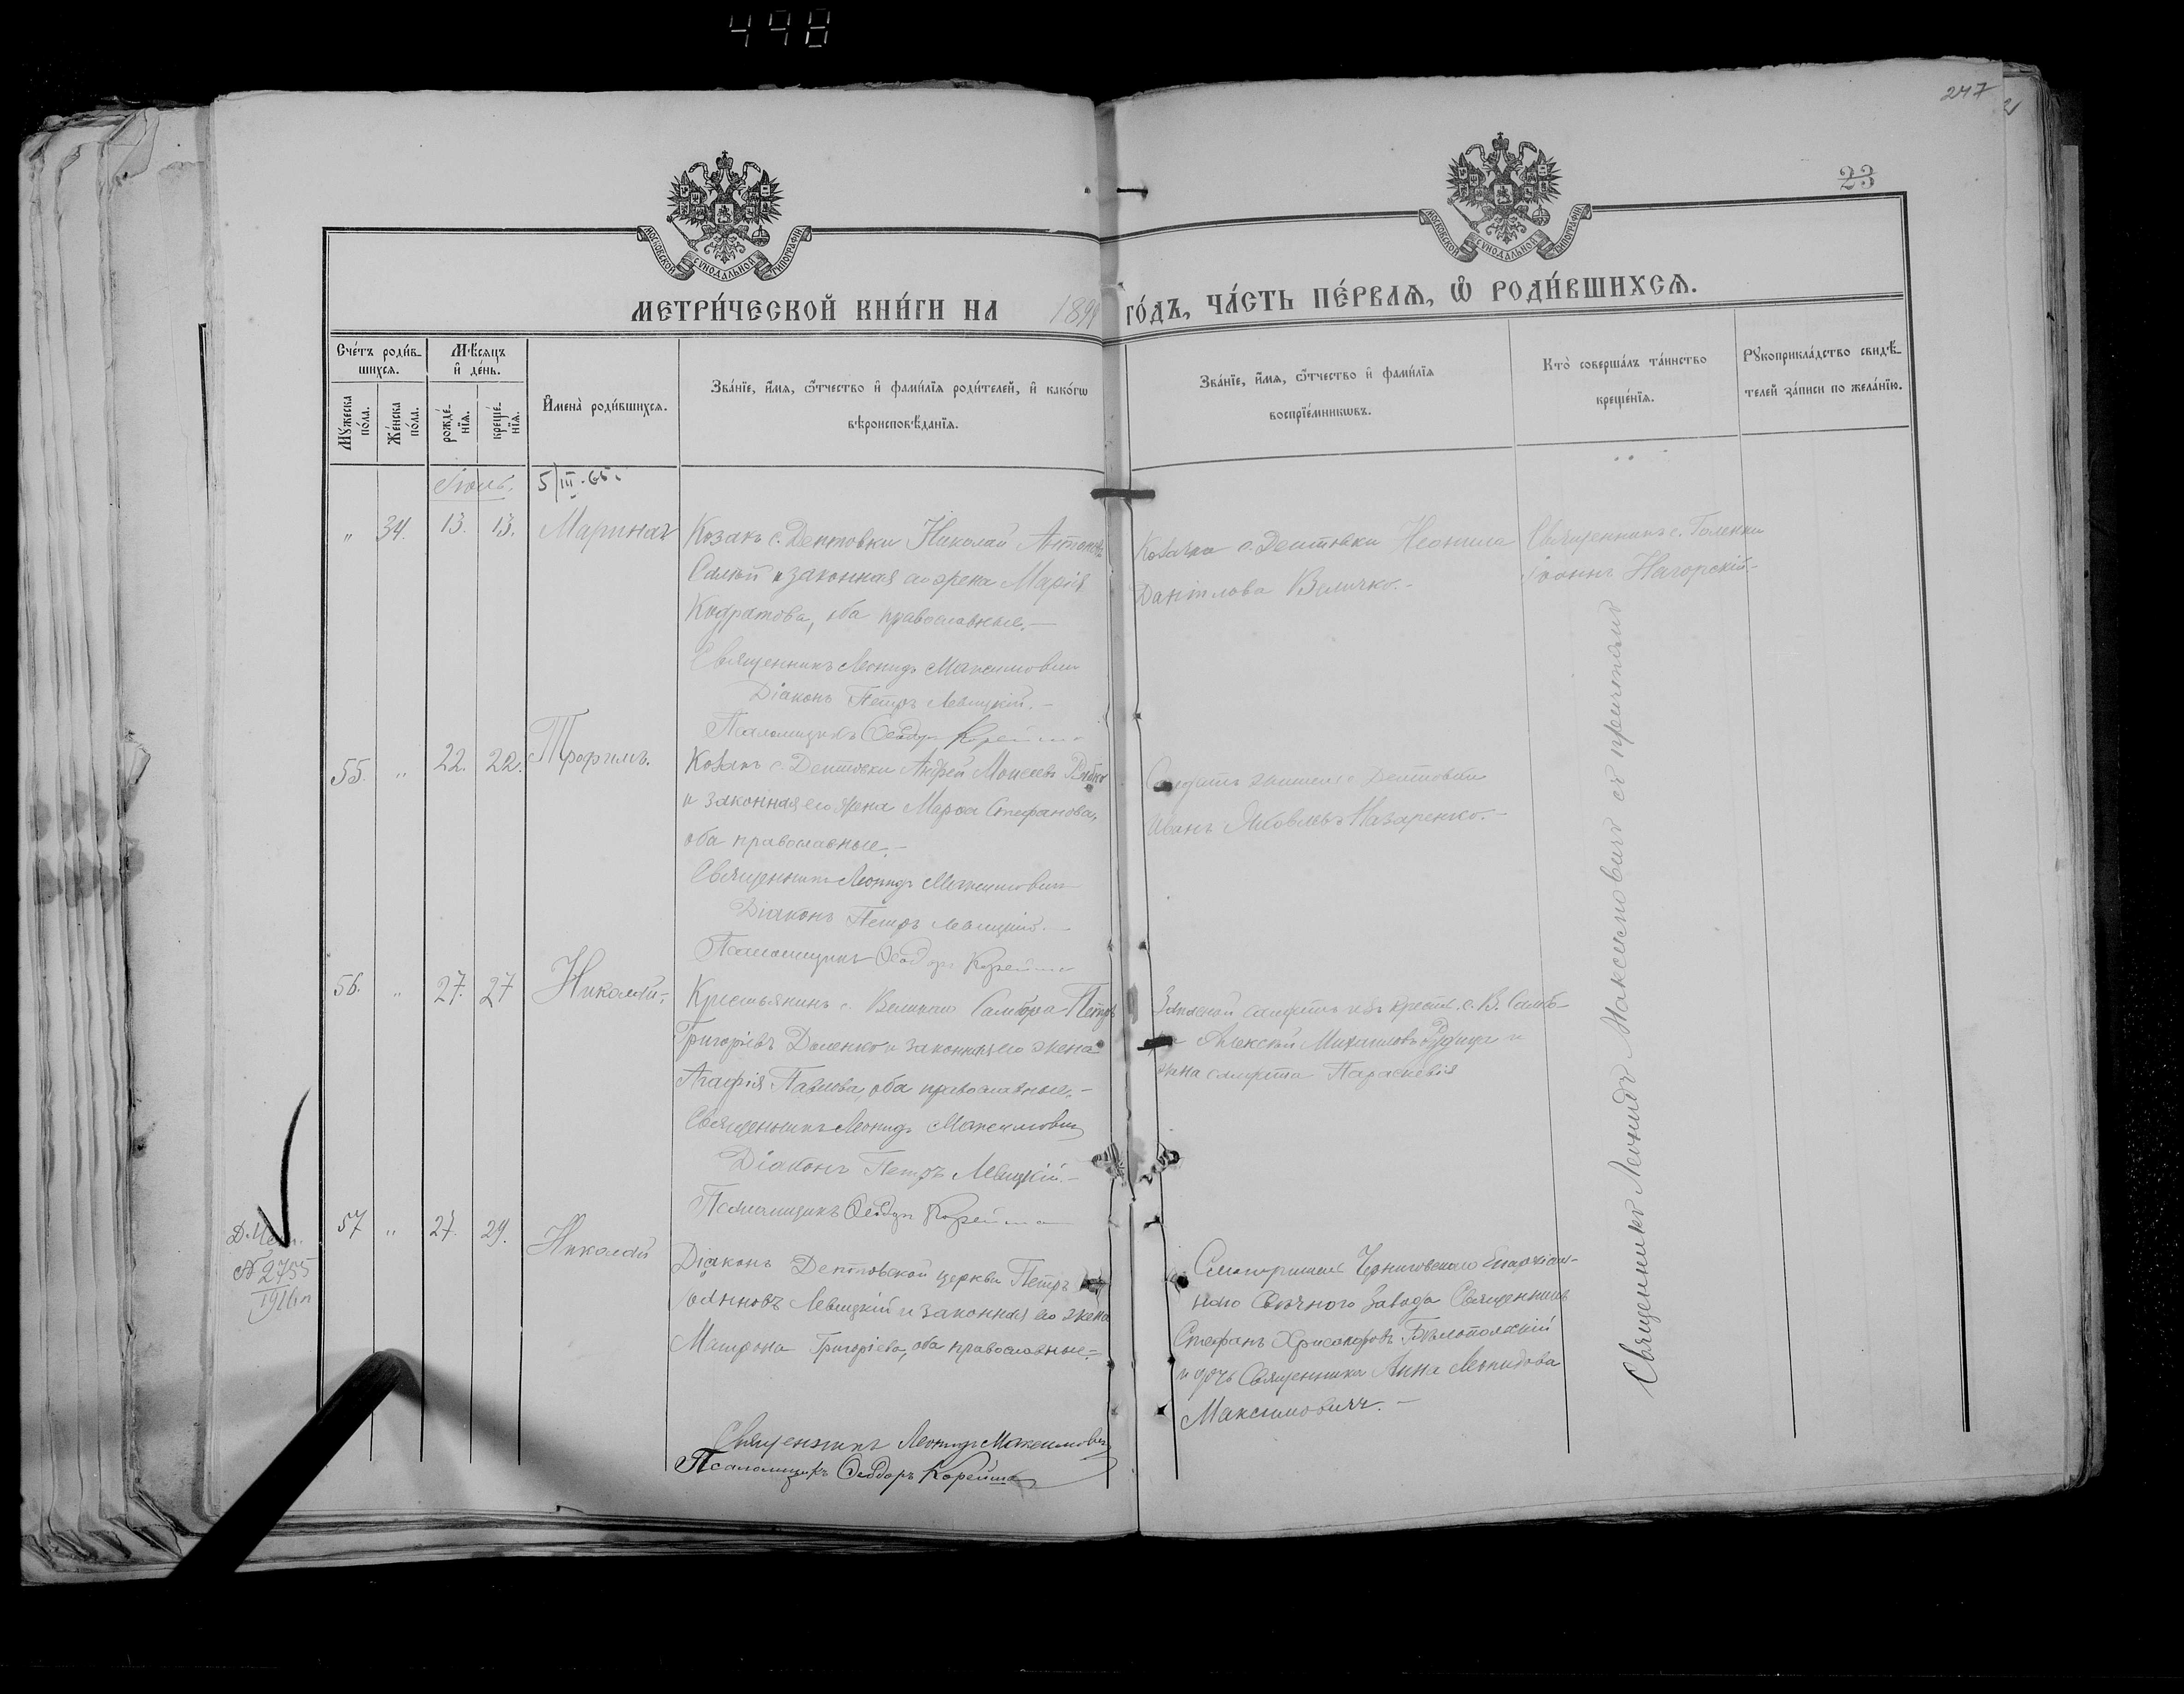 498
247
23
МОСКОВСКОЙ СѴНОДАЛЬНОЙ ТИПОГРАФІИ
МОСКОВСКОЙ СѴНОДАЛЬНОЙ ТИПОГРАФІИ
МЕТРИ́ЧЕСКОЙ КНИ́ГИ НА 1899 ГО́ДЪ, ЧА́СТЬ ПЕ́РВАѦ, Ѿ РОДИ́ВШИХСѦ.
Сче́тъ роди́в-
шихсѧ.
Мꙋ́жеска по́ла.
Же́нска по́ла.
Мѣ́сѧцъ и҆ де́нь.
рожде́-нїѧ.
креще́-нїѧ.
И҆мена̀ роди́вшихсѧ.
Зва́нїе, и҆́мѧ, ѻ҆́тчество и҆ фами́лїѧ роди́телей, и҆ како́гѡ
вѣроисповѣ́данїѧ.
Зва́нїе, и҆́мѧ, ѻ҆́тчество и҆ фами́лїѧ
воспрїе́мникѡвъ.
Кто̀ соверша́лъ та́инство
креще́нїѧ.
Рꙋкоприкла́дство свидѣ́-
телей за́писи по жела́нїю.
Іюль.
5/III-65.
" 34. 13. 13. Марина
Козакъ с. Дептовки Николай Антоновъ
и законная его жена Марія
Кодратова, оба православные.—
Священникъ Леонидъ Максимовичъ
Діаконъ Петръ Левицкій.—
Псаломщикъ Ѳеодоръ Корейша
Козачка с. Дептовки Неонила
Даніилова Величко.—
Священникъ с. Голенки
Іоаннъ Нагорскій—
55. " 22. 22. Трофимъ.
Козакъ с. Дептовки Андрей Моисеевъ Рябко
и законная его жена Марѳа Стефанова,
оба православные.—
Священникъ Леонидъ Максимовичъ
Діаконъ Петръ Левицкій.—
Псаломщикъ Ѳеодоръ Корейша
с. Дептовки
Иванъ Яковлевъ Назаренко.—
56. " 27. 27 Николай.
Крестьянинъ с. Великаго Самбора Петръ
Григорьевъ Доленко и законная его жена
Агафія Павлова, оба православные.—
Священникъ Леонидъ Максимовичъ
Діаконъ Петръ Левицкій.—
Псаломщикъ Ѳеодоръ Корейша
Запасной солдатъ изъ крест. с. В. Самбо-
ра Алексѣй Михаиловъ и
жена солдата Параскевія
Д. Мет.
№ 2755
1916 г.
57 " 27. 29. Николай
Діаконъ Дептовской церкви Петръ
Іоанновъ Левицкій и законная его жена
Матрона Григоріева, оба православные.—
Священникъ Леонидъ Максимовичъ
Псаломщикъ Ѳеодоръ Корейша
Смотритель Черниговскаго Епархіаль-
наго Свѣчного Завода Священникъ
Стефанъ Бѣлопольскій
и дочь Священника Анна Леонидова
Максимовичъ.—
Священникъ Леонидъ Максимовичъ съ причтомъ